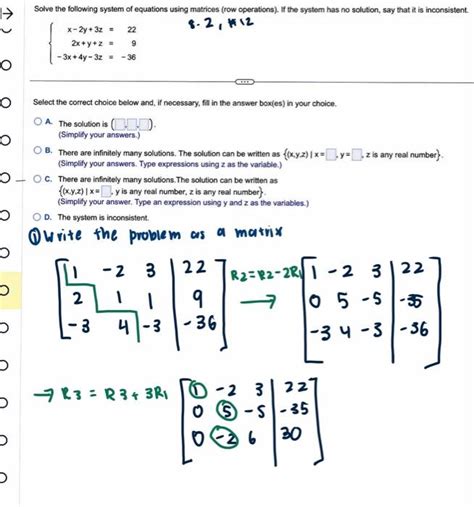 Solve the following system of equations using matrices (row operations). If the system has no solution, say that it is inconsistent.
8.2, #12
x-2y+3z = 22
2x+y+z = 9
-3x+4y-3z = -36
Select the correct choice below and, if necessary, fill in the answer box(es) in your choice.
A. The solution is ( , , ).
(Simplify your answers.)
B. There are infinitely many solutions. The solution can be written as {(x,y,z) | x= , y= , z is any real number}.
(Simplify your answers. Type expressions using z as the variable.)
C. There are infinitely many solutions.The solution can be written as
{(x,y,z) | x= , y is any real number, z is any real number}.
(Simplify your answer. Type an expression using y and z as the variables.)
D. The system is inconsistent.
① Write the problem as a matrix
1 -2 3 | 22 R2=R2-2R1 1 -2 3 | 22
2 1 1 | 9 → 0 5 -5 | -35
-3 4 -3 | -36 -3 4 -3 | -36
→ R3 = R3 + 3R1 1 -2 3 | 22
0 5 -5 | -35
0 -2 6 | 30